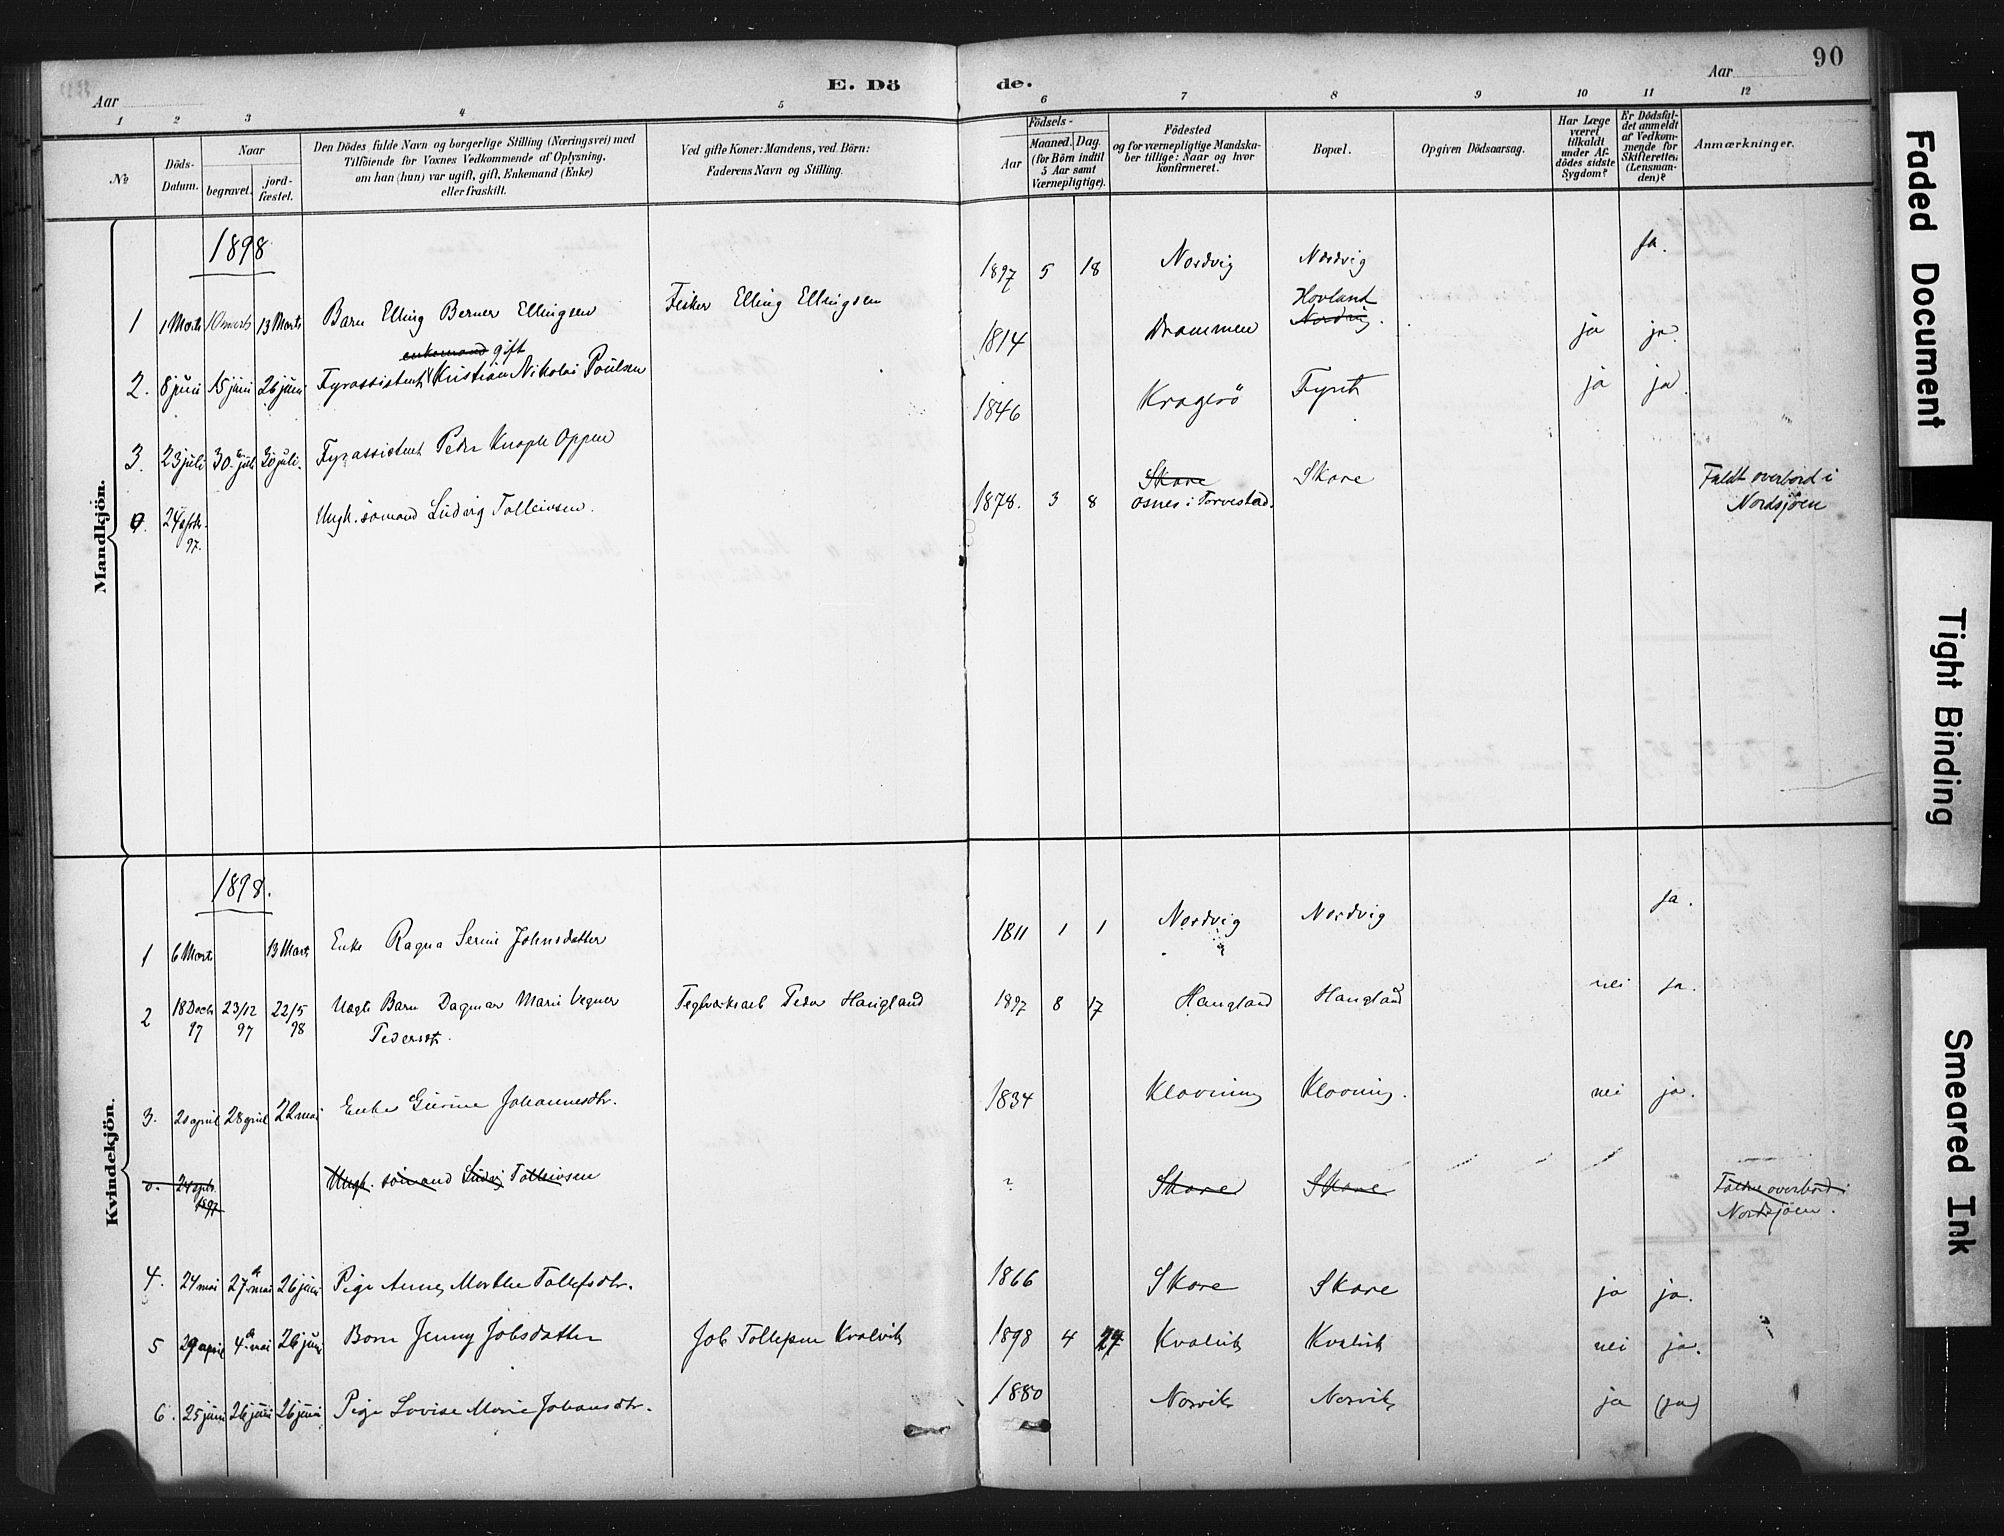 90
Aar
E. Dö
de.
Aar
1
2
3
4
5
6
7
8
9
10
11
12
№
Döds-
Datum.
Naar
begravet.
jord-
fæstet.
Den Dödes fulde Navn og borgerlige Stilling (Næringsvei) med
Tilföiende for Voxnes Vedkommende af Oplysning,
om han (hun) var ugift, gift, Enkemand (Enke)
eller fraskilt.
Ved gifte Koner: Mandens, ved Börn:
Faderens Navn og Stilling.
Födsels-
Aar
Maaned. Dag.
(for Börn indtil
5 Aar samt
Værnepligtige).
Födested
og for værnepligtige Mandska-
ber tillige: Naar og hvor
konfirmeret.
Bopæl.
Opgiven Dödsaarsag.
Har Læge
været
tilkaldt
under Af-
dödes sidste
Sygdom?
Er Dödsfal-
det anmeldt
af Vedkom-
mende for
Skifteretten
(Lensman-
den)?
Anmærkninger.
Mandkjön.
1898
1 1 Marts 10 marts 13 Marts Barn Elling Berner Ellingsen Fisker Elling Ellingsen 1897 5 18 Nordvig Nordvig ja.
enkemand gift
2. 8 juni 15 juni 26 juni Fyrassistent Kristian Nikolai Poulsen 1814 Drammen Hovland Nordvig. ja ja.
3. 23 juli 30 juli 30 juli. Fyrassistent Peder Knoph Oppen 1846 Kragerö Fyret ja ja
24
97.
Ungk. sömand Ludvig Tolleivsen. 1878. 3 8 Skare Skare Faldt overbord i
Osnes i Torvestad. Nordsjöen
Kvindekjön.
1898.
1 6 Marts 13 Marts Enke Ragna Serine Johnsdatter 1811 1 1 Nordvig Nordvig ja.
2 18 Decb 23/12 22/5 Uægte Barn Dagmar Marie Vegner Teglværksarb Peder Haugland 1897 8 17 Haugland Haugland nei ja.
97 97 98 Pedersdt.
3. 20 april 28 april 22 mai Enke Gurine Johannesdtr. 1834 Klovning Klovning. nei ja.
Ungk. sömand Ludvig Tolleivsen ? Skare Skare Faldt overbord i
1897 Nordsjöen.
4. 24 mai 27 mai 26 juni Pige Anne Marthe Tollefsdtr. 1866 Skare Skare ja ja.
5 29 april 4 mai 26 juni Barn Jenny Jobsdatter Job Tollefsen Kvalvik 1898 4 27 Kvalvik Kvalvik nei ja.
6. 25 juni 26 juni 26 juni Pige Lovise Marie Johansdtr. 1880 Norvik Norvik ja (ja)
Faded Document
Tight Binding
Smeared Ink